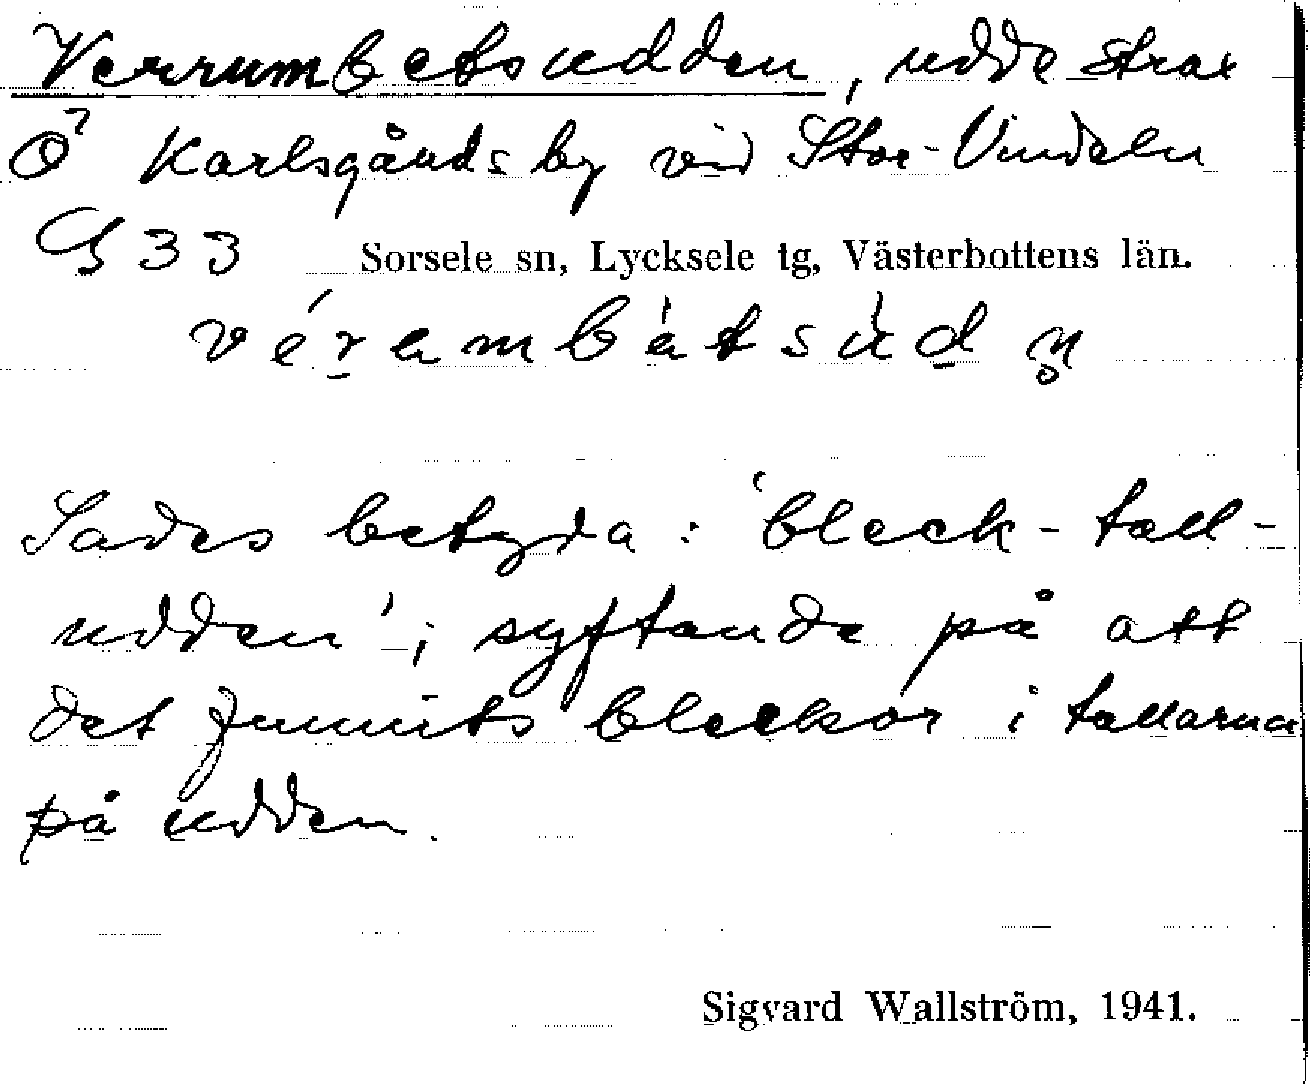 Verrumbetsudden, udde strax
Ö Karlsgårds by vid Stor-Vindeln
G 33 Sorsele sn, Lycksele tg, Västerbottens län.
Sades betyda: 'bleck-tall-
udden'; syftande på att
det funnits bleckor i tallarna
på udden.
Sigvard Wallström, 1941.